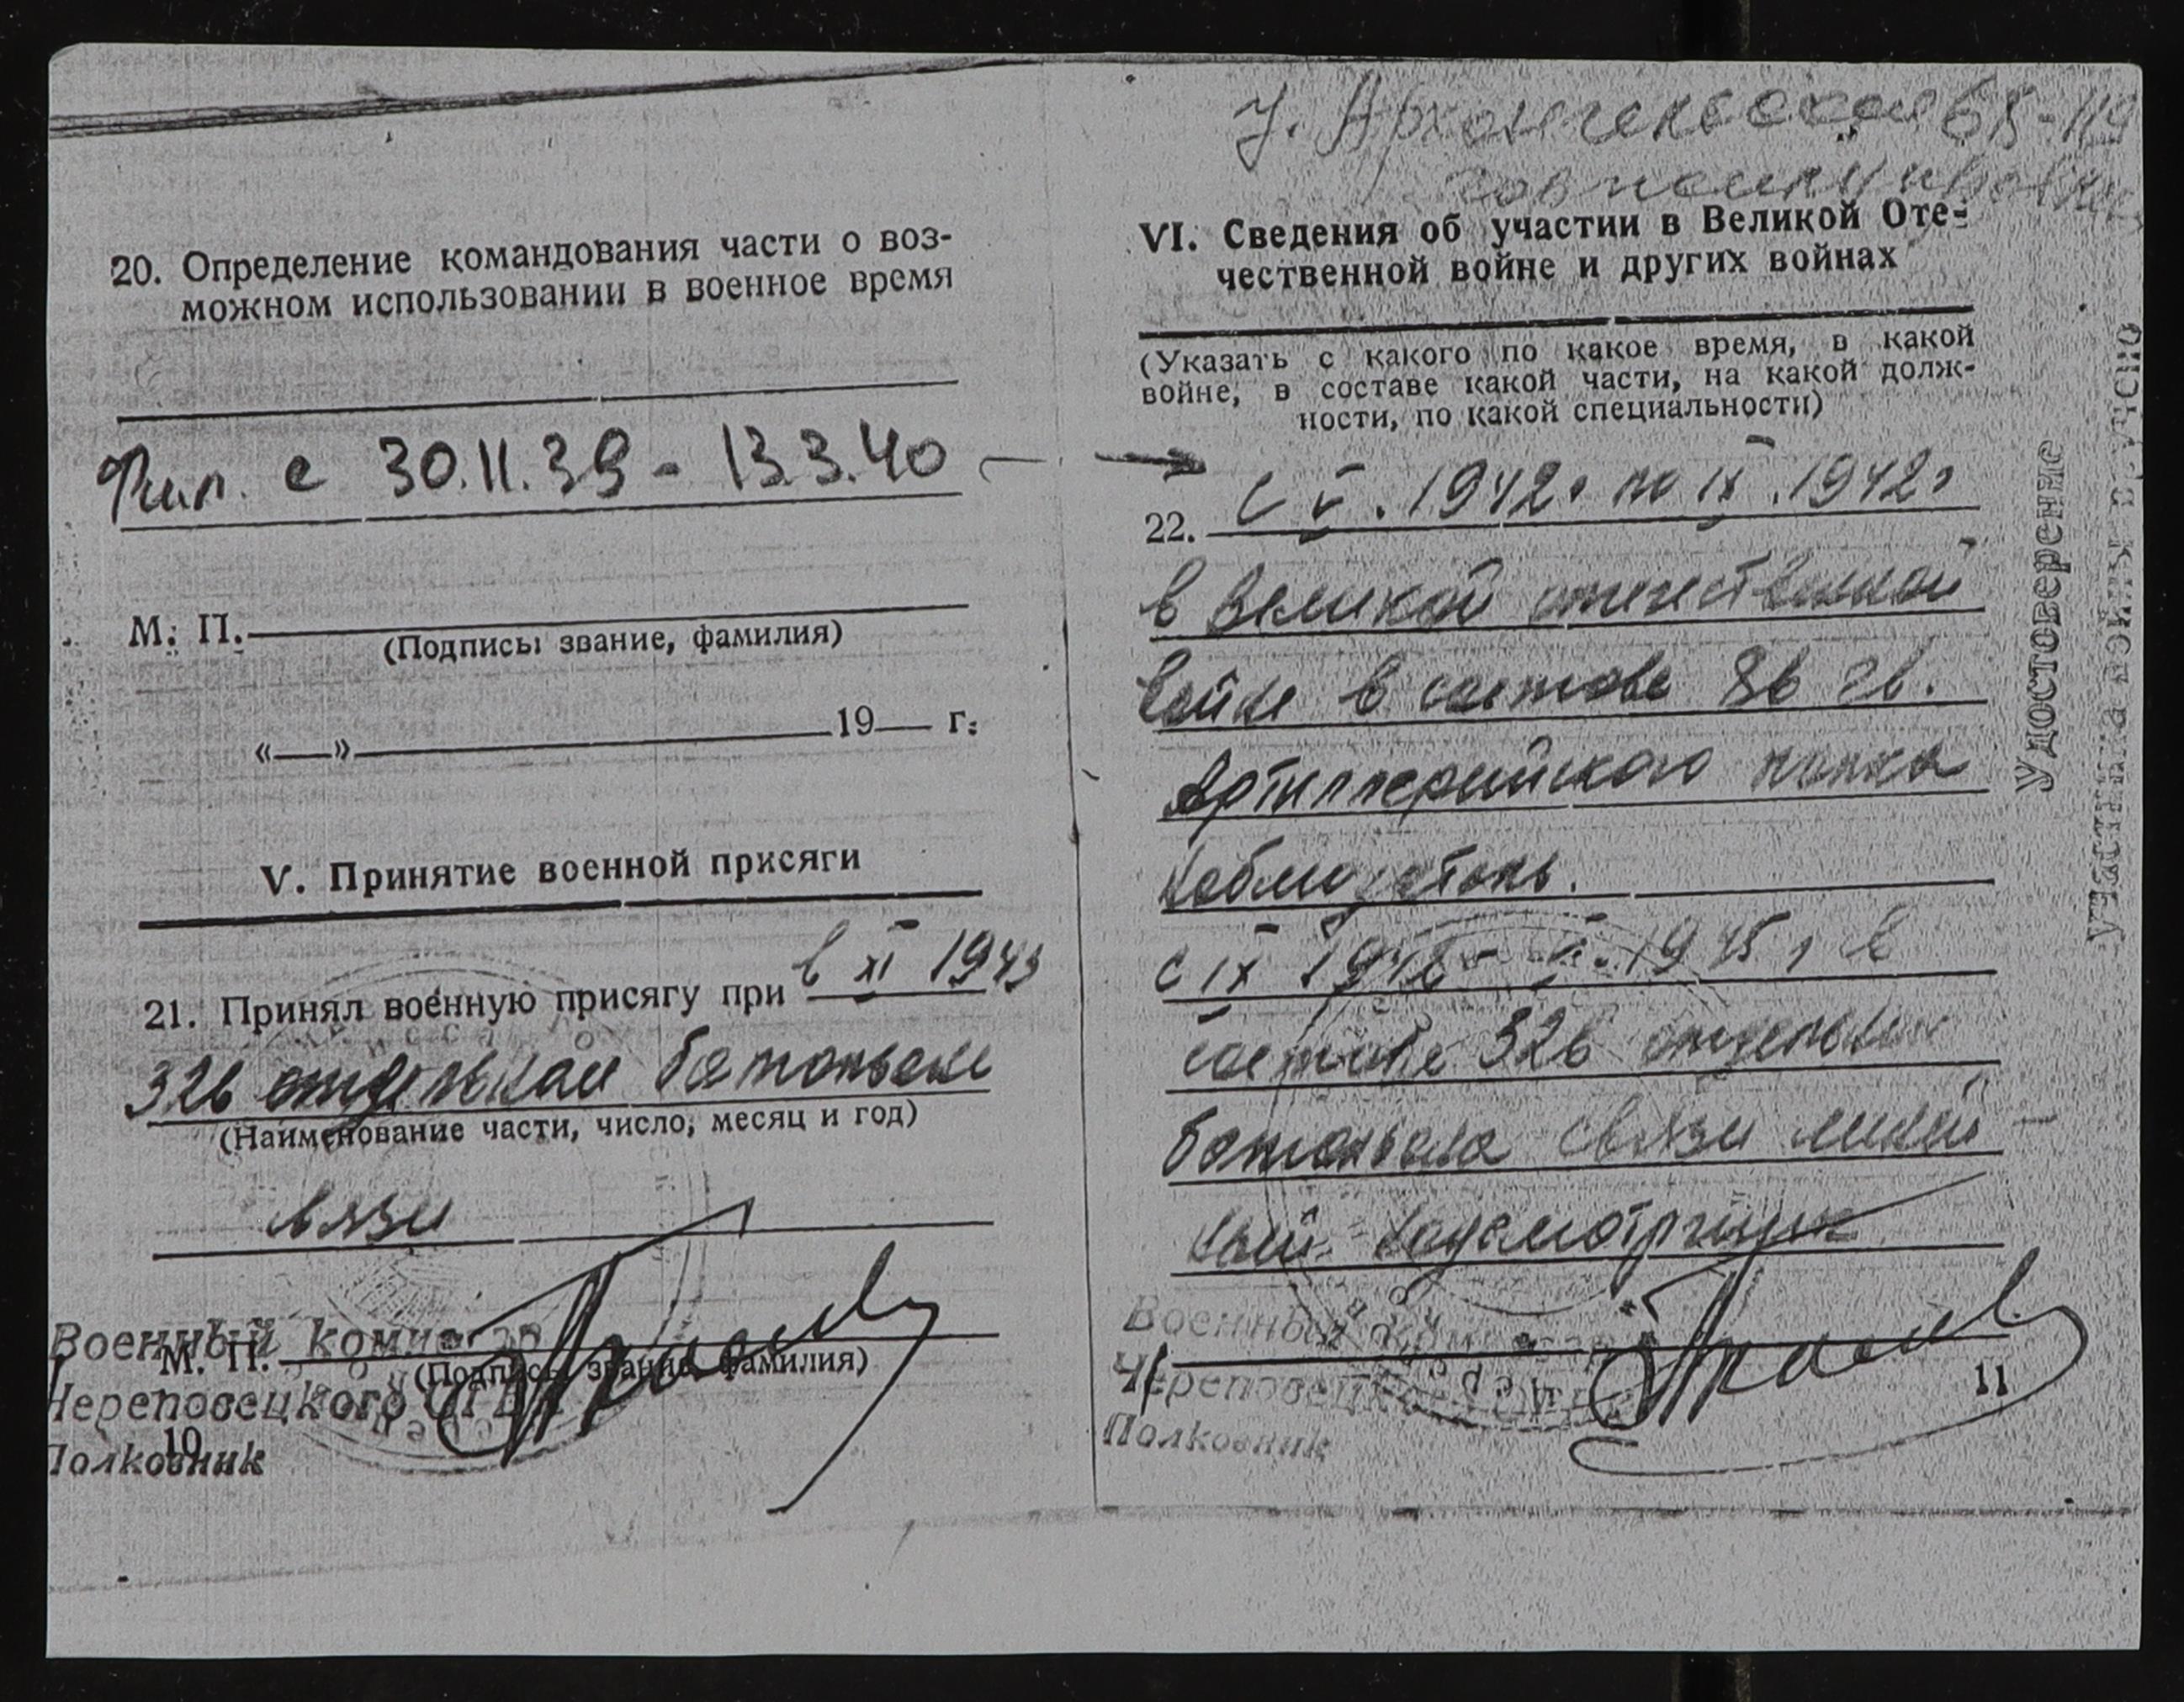 20. Определение командования части о воз-
можном использовании в военное время
с 30.11.39 - 13.3.40
М. П.
(Подпись, звание, фамилия)
«——» 19—— г.
V. Принятие военной присяги
21. Принял военную присягу при в XI 1943
326 отдельном батальоне
(Наименование части, число, месяц и год)
связи
Военный комиссар
М. П.
(Подпись, звание, фамилия)
Череповецкого ОГВК
10
Полковник
у. Архангельская 68-119
VI. Сведения об участии в Великой Оте-
чественной войне и других войнах
(Указать с какого по какое время, в какой
войне, в составе какой части, на какой долж-
ности, по какой специальности)
22. С V. 1942г по IX. 1942г
в Великой отечественной
войне в составе 86 гв.
Артиллерийского полка
наблюдатель.
с IX 1942 - V. 1945г в
составе 326 отдельного
батальона связи линей-
ный надсмотрщик
Военный комиссар
Череповецкого ОГВК
11
Полковник
Удостоверение
участника войны вручено